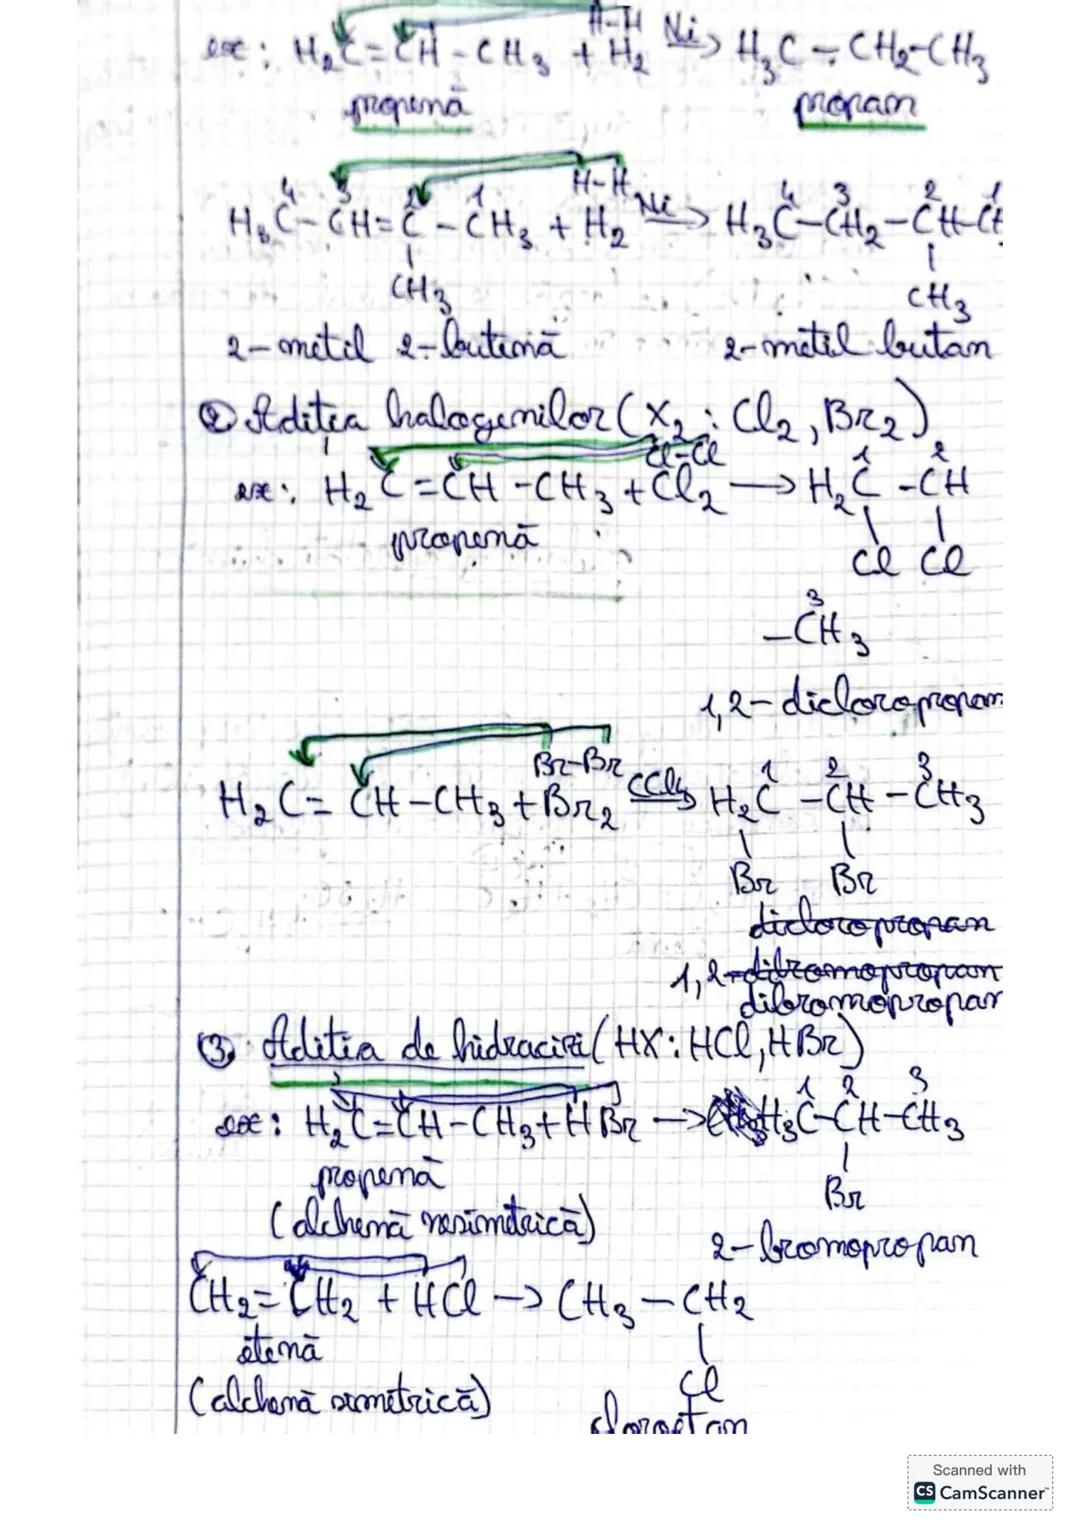 H-H
ex: H₂C=CH-CH₃ + H₂ Ni→ H₃C-CH₂-CH₃
propenă propan
4 3 2 1 H-H 4 3 2 1
H₃C-CH=C-CH₃ + H₂ Ni→ H₃C-CH₂-CH-CH
CH₃ CH₃
2-metil 2-butenă 2-metil butan
② Adiția halogenilor (X₂: Cl₂, Br₂)
Cl-Cl 1 2
ex: H₂C=CH-CH₃ + Cl₂ → H₂C-CH
propenă Cl Cl
3
-CH₃
1,2-dicloropropan
Br-Br 1 2 3
H₂C=CH-CH₃ + Br₂ CCl₄→ H₂C-CH-CH₃
Br Br
dicloropropan
1,2-dibromopropan
dibromopropan
③ Aditia de hidracizi (HX: HCl, HBr)
1 2 3
ex: H₂C=CH-CH₃ + HBr → H₃C-CH-CH₃
propenă Br
(alchenă nesimetrică) 2-bromopropan
CH₂=CH₂ + HCl → CH₃-CH₂
etenă Cl
(alchenă simetrică) cloroetan
Scanned with
CS CamScanner